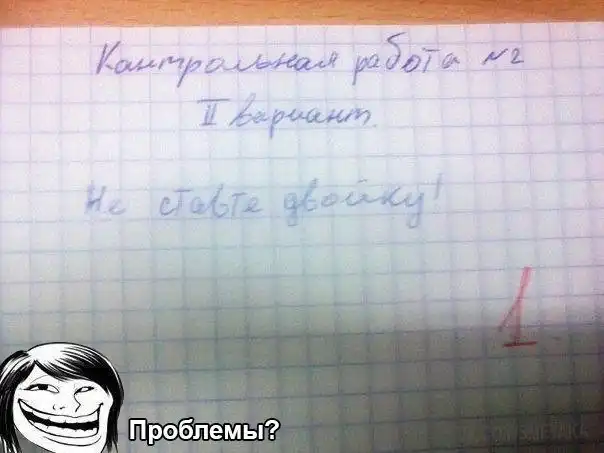 Контрольная работа №2
II вариант.
Не ставте двойку!
1
Проблемы?